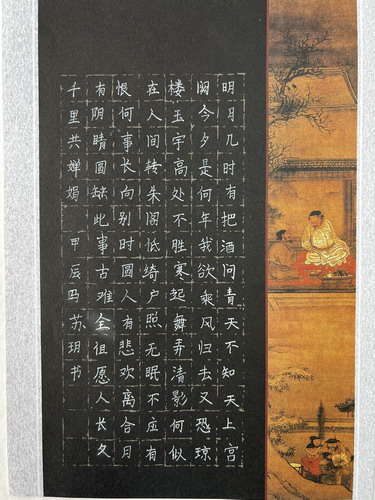 明月几时有把酒问青天不知天上宫
阙今夕是何年我欲乘风归去又恐琼
楼玉宇高处不胜寒起舞弄清影何似
在人间转朱阁低绮户照无眠不应有
恨何事长向别时圆人有悲欢离合月
有阴晴圆缺此事古难全但愿人长久
千里共婵娟 甲辰马苏玥书